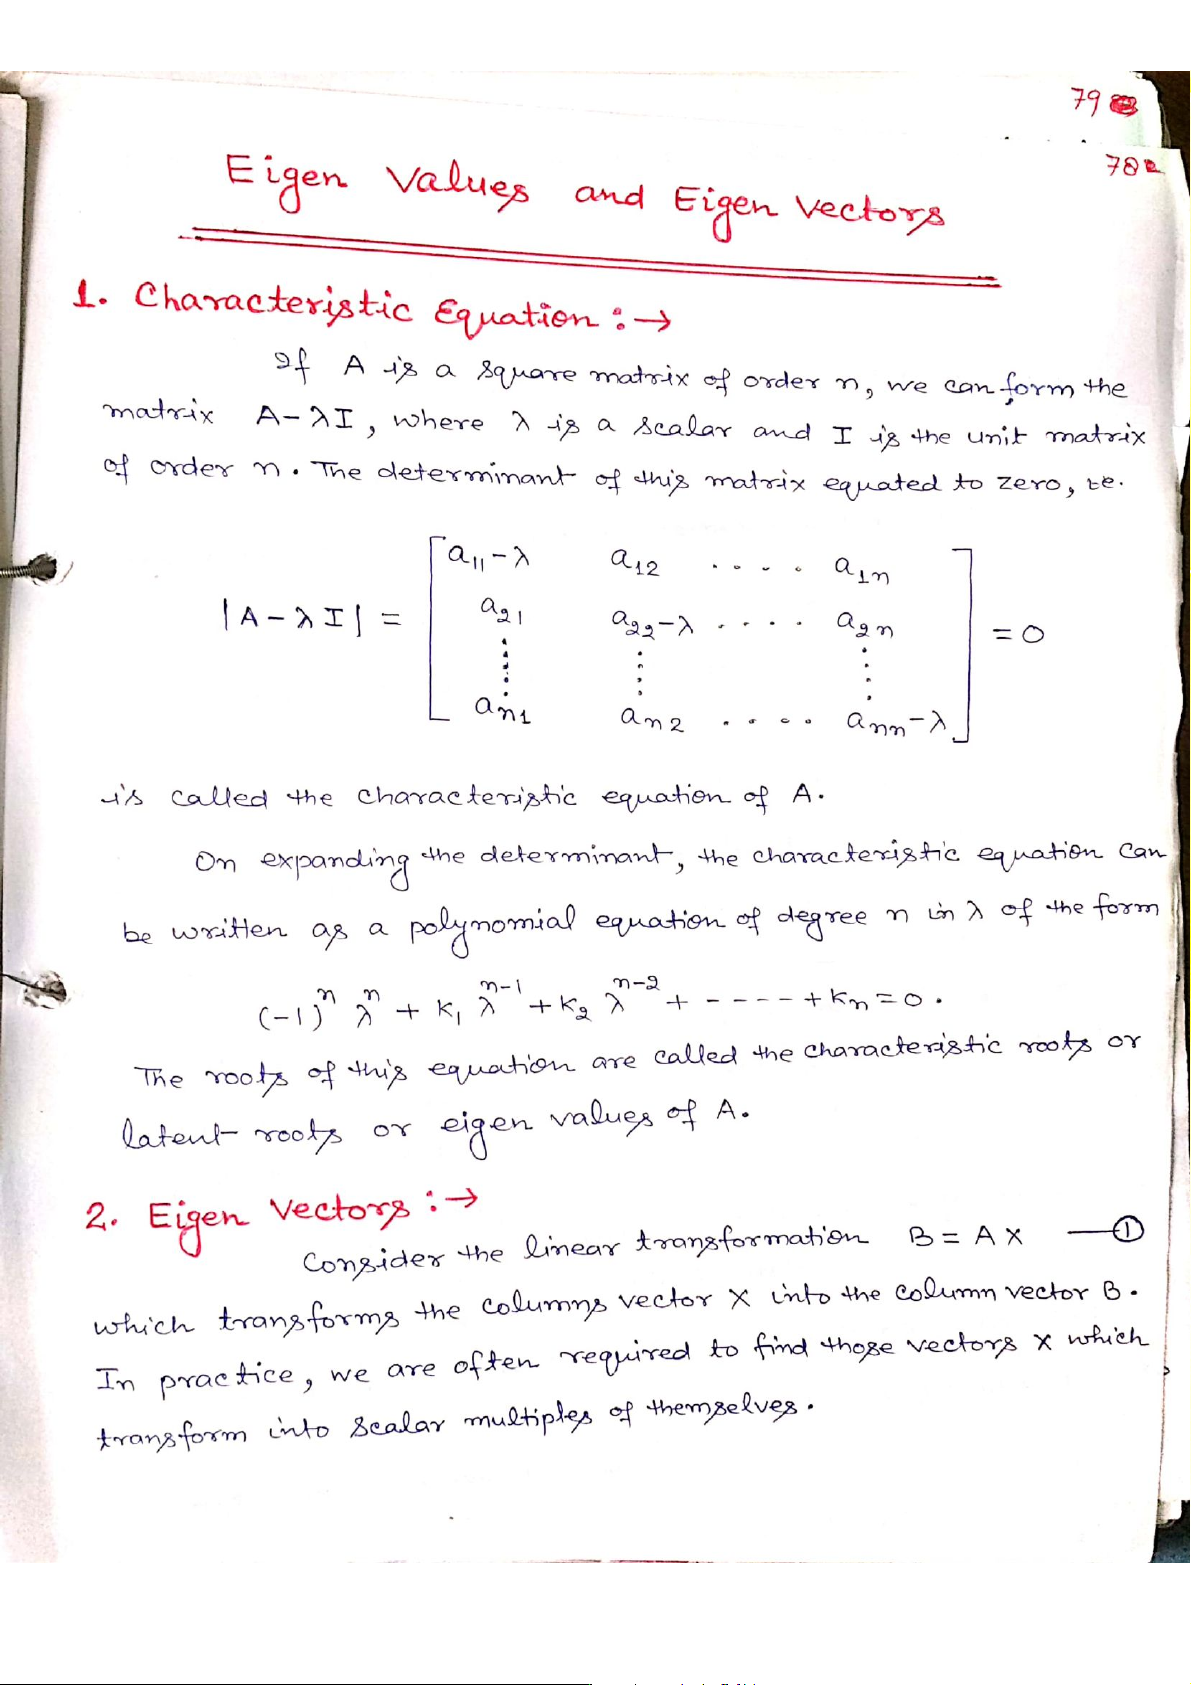 79
78
Eigen Values and Eigen Vectors
1. Characteristic Equation :→
If A is a square matrix of order n, we can form the
matrix A-λI, where λ is a scalar and I is the unit matrix
of order n. The determinant of this matrix equated to zero, i.e.
|A-λI| = [a₁₁-λ a₁₂ .... a₁ₙ
a₂₁ a₂₂-λ .... a₂ₙ
⋮ ⋮ ⋮
aₙ₁ aₙ₂ .... aₙₙ-λ] = 0
is called the characteristic equation of A.
On expanding the determinant, the characteristic equation can
be written as a polynomial equation of degree n in λ of the form
(-1)ⁿ λⁿ + K₁ λⁿ⁻¹ + K₂ λⁿ⁻² + ----- + Kₙ = 0.
The roots of this equation are called the characteristic roots or
latent roots or eigen values of A.
2. Eigen Vectors :→
Consider the linear transformation B = AX —①
which transforms the columns vector X into the column vector B.
In practice, we are often required to find those vectors X which
transform into scalar multiples of themselves.